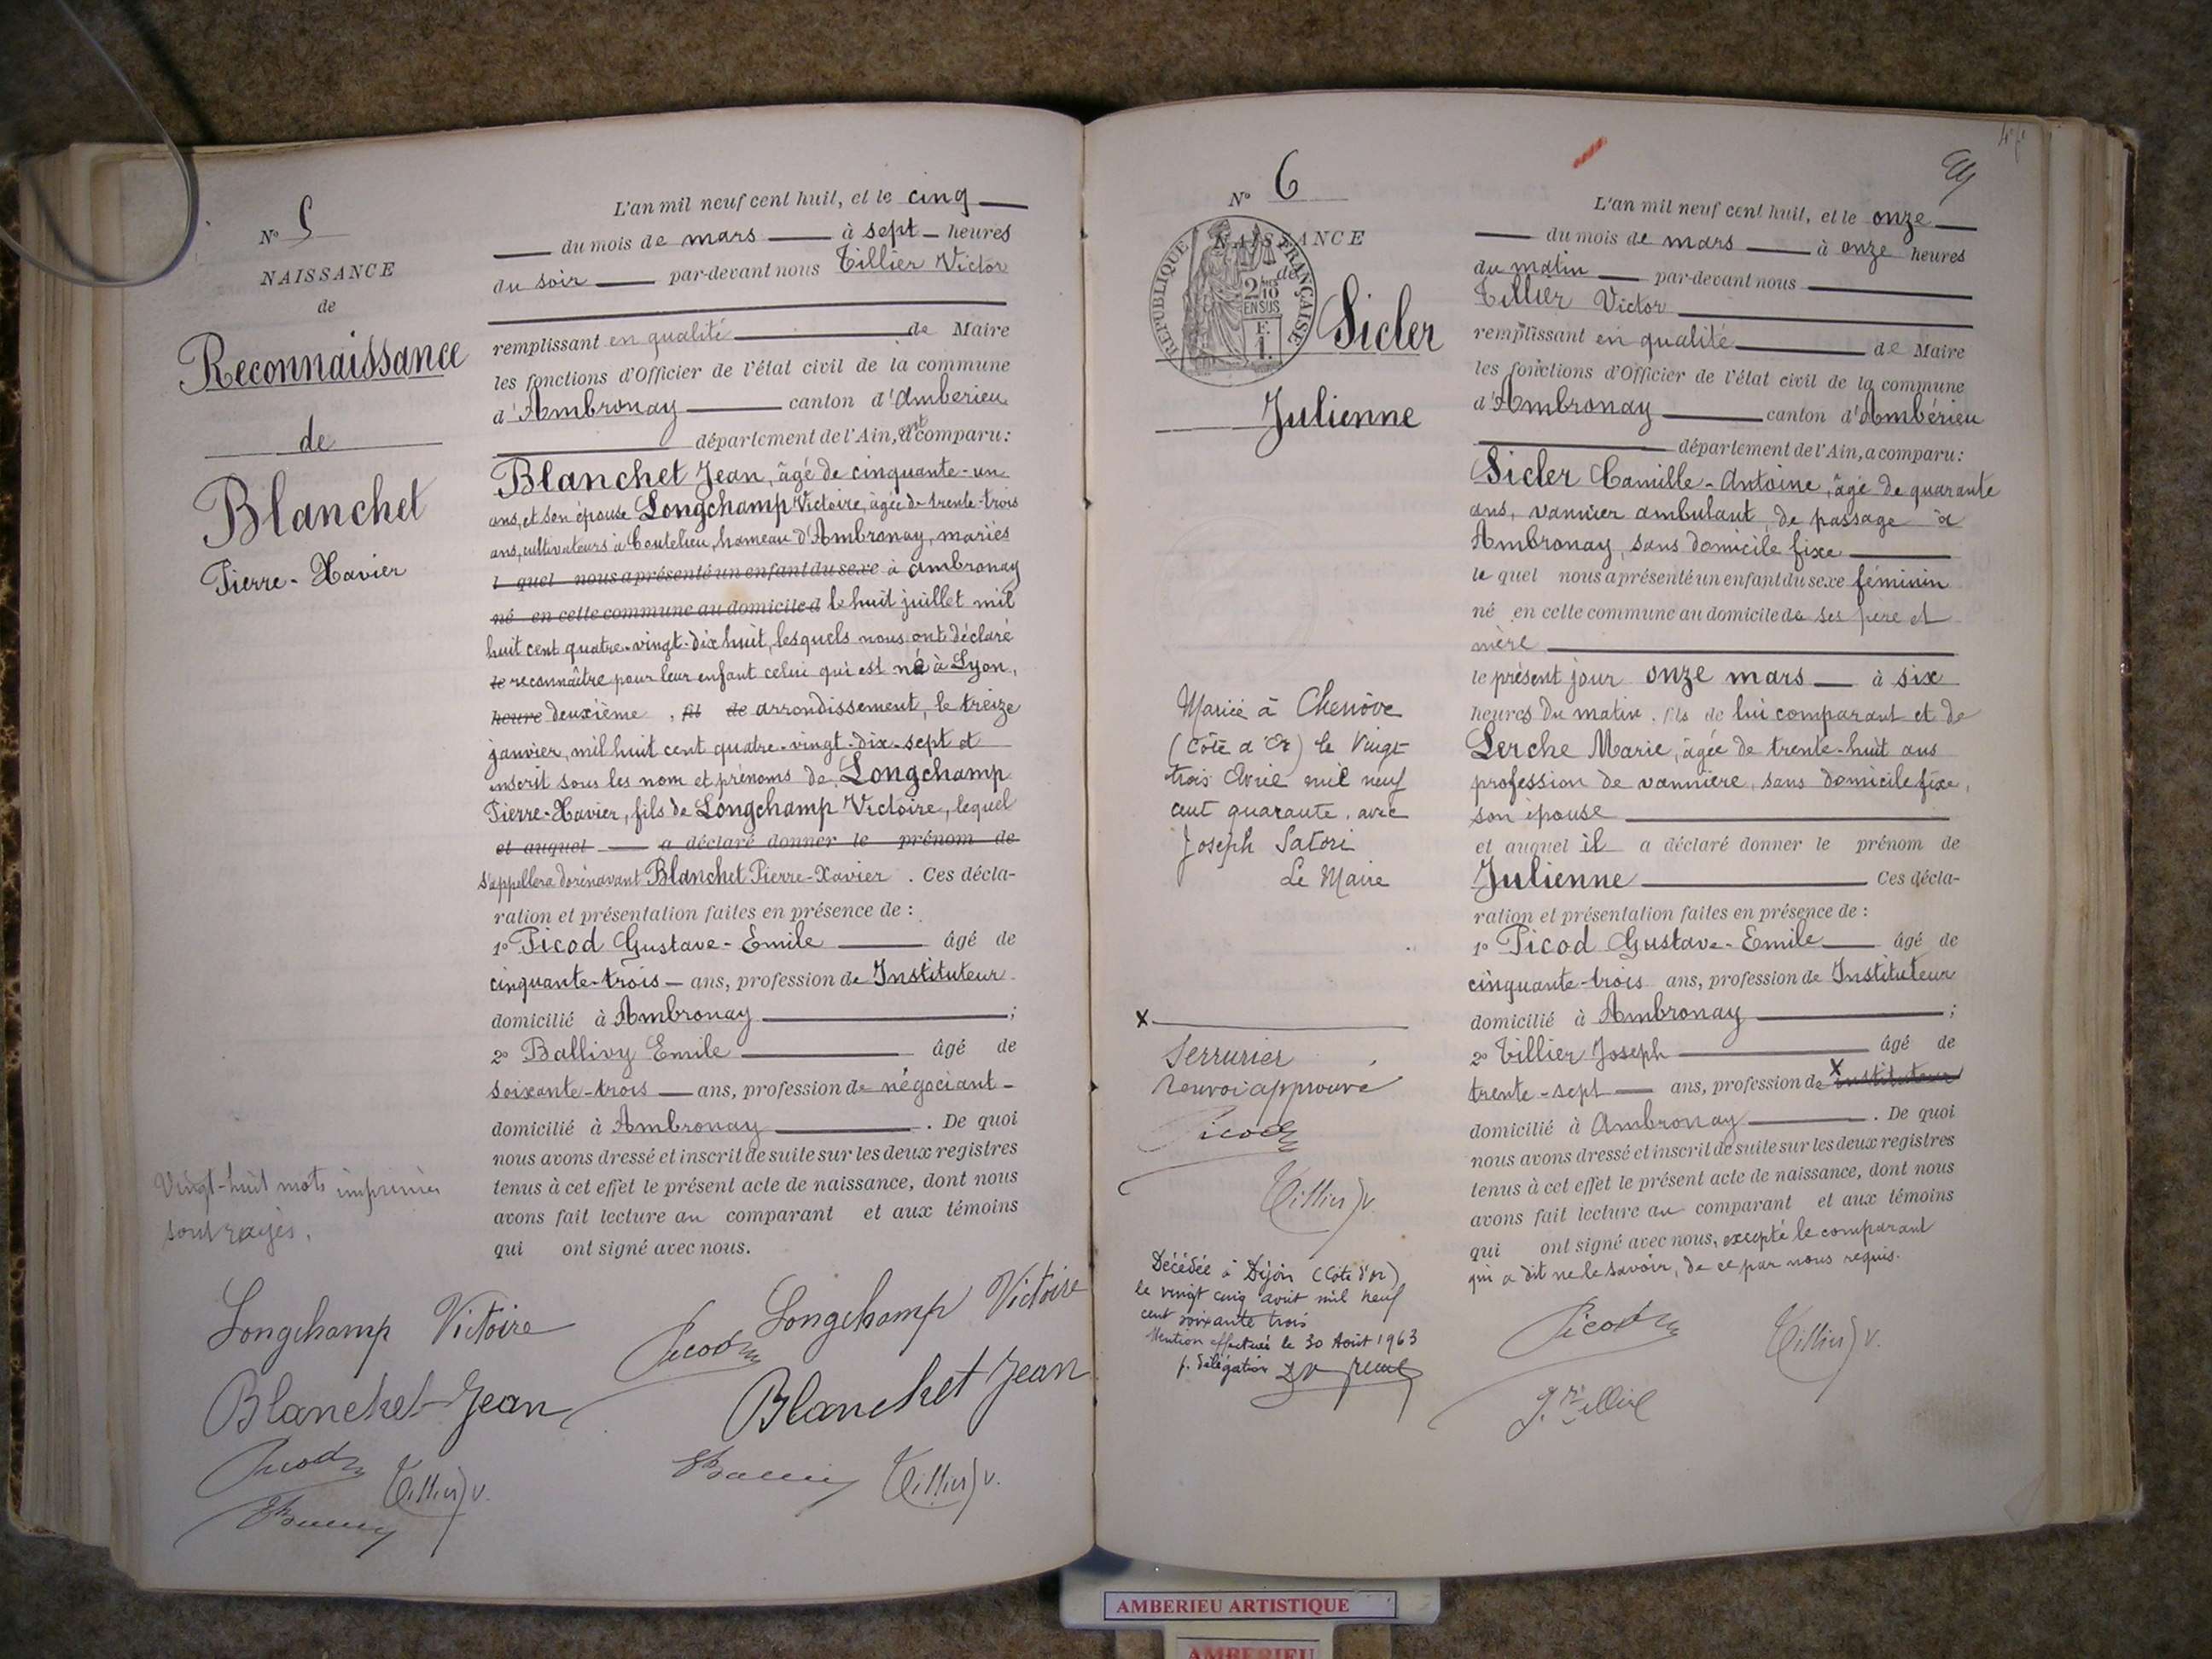 N° 5
NAISSANCE
de
Reconnaissance
de
Blanchet
Pierre-Xavier
Vingt-huit mots imprimés
sont rayés.
L'an mil neuf cent huit, et le cinq
du mois de mars à sept heures
du soir par-devant nous Tillier Victor
remplissant en qualité de Maire
les fonctions d'Officier de l'état civil de la commune
d'Ambronay canton d'Ambérieu
département de l'Ain, ont comparu:
Blanchet Jean, âgé de cinquante-un
ans, et son épouse Longchamp Victoire, âgée de trente-trois
ans, cultivateurs à Coutelieu, hameau d'Ambronay, mariés
l quel nous a présenté un enfant du sexe à Ambronay
né en cette commune au domicile d le huit juillet mil
huit cent quatre-vingt-dix huit, lesquels nous ont déclaré
le reconnaître pour leur enfant celui qui est né à Lyon,
heure deuxième, fil de arrondissement, le treize
janvier mil huit cent quatre-vingt-dix-sept et
inscrit sous les nom et prénoms de Longchamp
Pierre-Xavier, fils de Longchamp Victoire, lequel
et auquel a déclaré donner le prénom de
s'appellera dorénavant Blanchet Pierre-Xavier. Ces décla-
ration et présentation faites en présence de :
1° Picod Gustave-Emile âgé de
cinquante-trois ans, profession de Instituteur
domicilié à Ambronay ;
2° Ballivy Emile âgé de
soixante-trois ans, profession de négociant
domicilié à Ambronay . De quoi
nous avons dressé et inscrit de suite sur les deux registres
tenus à cet effet le présent acte de naissance, dont nous
avons fait lecture au comparant et aux témoins
qui ont signé avec nous.
Longchamp Victoire
Longchamp Victoire
Picod
Blanchet Jean
Blanchet Jean
Picod
Tillier V.
Tillier V.
N° 6
NAISSANCE
de
REPUBLIQUE FRANÇAISE
2/10
EN SUS
F.
1.
Sicler
Julienne
Mariée à Chenôve
(Côte d'Or) le Vingt
trois Avril mil neuf
cent quarante, avec
Joseph Satori
Le Maire
X
Serrurier
renvoi approuvé
Picod
Tillier V.
Décédée à Dijon (Côte d'Or)
le vingt cinq août mil neuf
cent soixante trois
Mention effectuée le 30 Août 1963
p. délégation
L'an mil neuf cent huit, et le onze
du mois de mars à onze heures
du matin par-devant nous
Tillier Victor
remplissant en qualité de Maire
les fonctions d'Officier de l'état civil de la commune
d'Ambronay canton d'Ambérieu
département de l'Ain, a comparu:
Sicler Camille-Antoine, âgé de quarante
ans, vannier ambulant, de passage à
Ambronay, sans domicile fixe
le quel nous a présenté un enfant du sexe féminin
né en cette commune au domicile de ses père et
mère
le présent jour onze mars à six
heures du matin, fils de lui comparant et de
Lerche Marie, âgée de trente-huit ans
profession de vannière, sans domicile fixe,
son épouse
et auquel il a déclaré donner le prénom de
Julienne Ces décla-
ration et présentation faites en présence de :
1° Picod Gustave-Emile âgé de
cinquante-trois ans, profession de Instituteur
domicilié à Ambronay ;
2° Tillier Joseph âgé de
trente-sept ans, profession de X instituteur
domicilié à Ambronay . De quoi
nous avons dressé et inscrit de suite sur les deux registres
tenus à cet effet le présent acte de naissance, dont nous
avons fait lecture au comparant et aux témoins
qui ont signé avec nous, excepté le comparant
qui a dit ne le savoir, de ce par nous requis.
Picod
Tillier V.
J. Tillier
AMBERIEU ARTISTIQUE
AMBERIEU